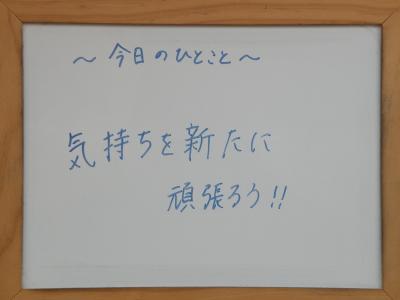 ～今日のひとこと～
気持ちを新たに
頑張ろう!!